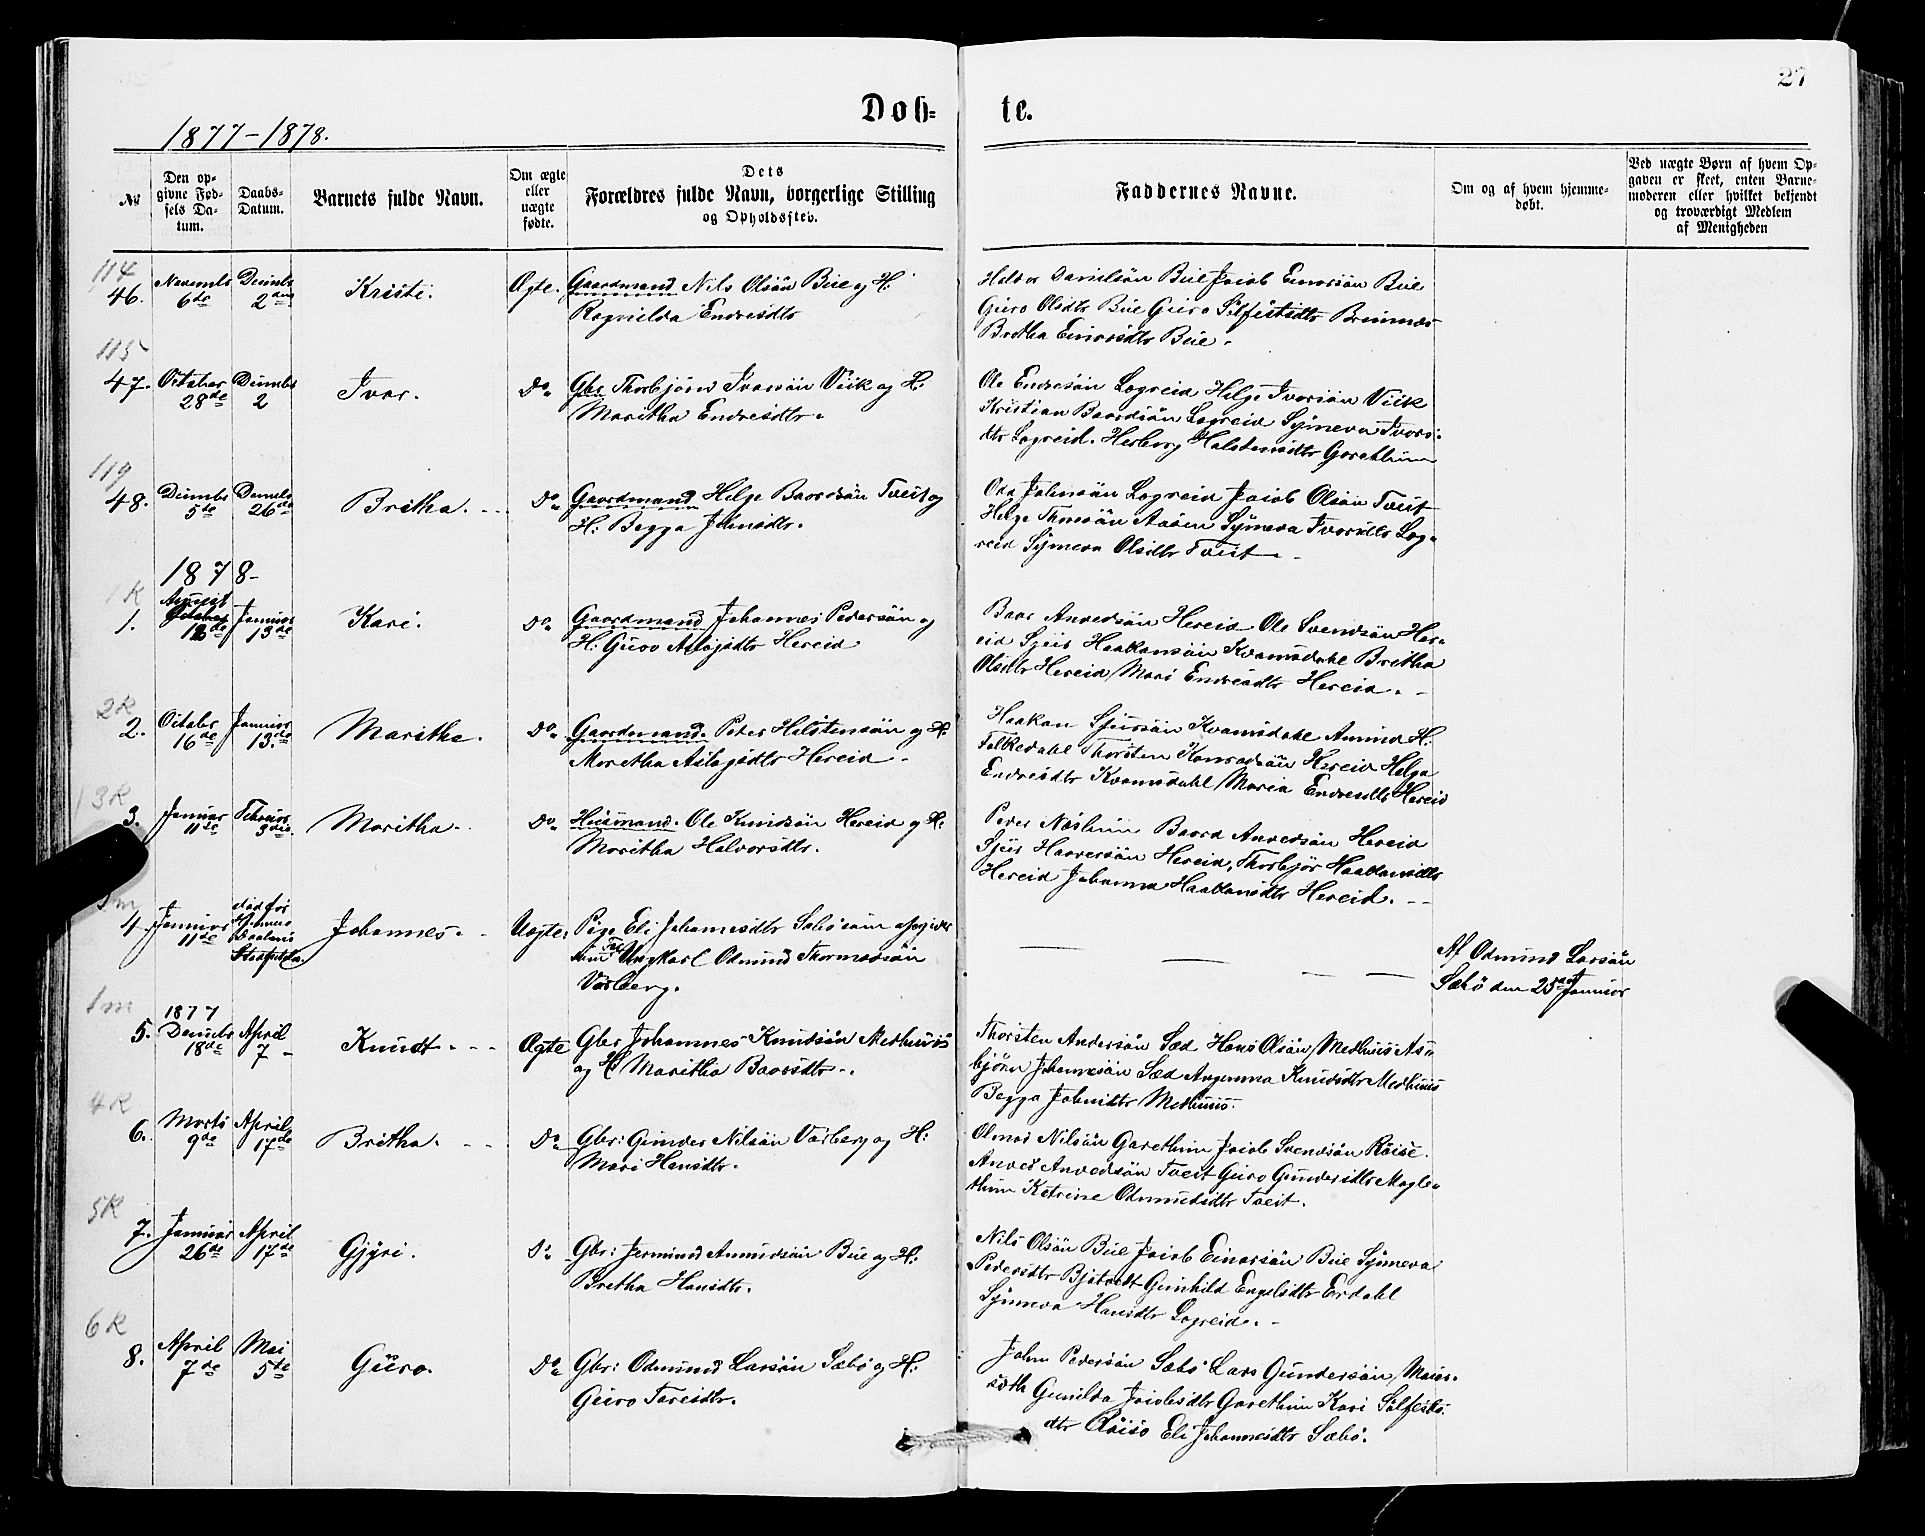 27
Døb-
te.
1877-1878.
No
Den op-
givne Fød-
sels Da-
tum.
Daabs-
Datum.
Barnets fulde Navn.
Om ægte
eller
uægte
fødte.
Dets
Forældres fulde Navn, borgerlige Stilling
og Opholdssted.
Faddernes Navne.
Om og af hvem hjemme-
døbt.
Ved uægte Børn af hvem Op-
gaven er skeet, enten Barne-
moderen eller hvilket bekjendt
og troværdigt Medlem
af Menigheden
114
46.
Novembr
6de
2den
Kristi.
Ægte.
Gaardmand Nils Olsön Bue og H:
Ragnilda Endresdtr
Danielsön Bue Jacob Einarsön Bue
Guro Olsdtr Bue Guro
Bretha Einarsdtr Bue.
115
47.
October
28de
2
Ivar.
Do
Gbr. Thorbjörn Ivarsön Viik og H:
Maritha Endresdtr.
Ole Endresön Lægreid Helge Ivarsön Viik
Kristian Baardsön Lægreid Synneva Ivars-
dtr Lægreid. Herborg Halstensdtr Garethun
119
48.
5te
26de
Britha.
Do
Gaardmand Helge Baardsön Tveit og
H: Begga Johnsdtr.
Odd Johnsön Lægreid Jacob Olsön Tveit
Helge Thomsön Aasen Synneva Ivarsdtr Læg-
reid Synneva Olsdtr Tveit
1878-
1K
1.
August
October
12de
Januar
13de
Kari.
Do
Gaardmand Johannes Pedersön og
H: Guro Aslagsdtr Hereid
Anvedsön Hereid Ole Svendsön Her-
eid Sjur Haakonsön Kvamsdahl Britha
Olsdtr Hereid Mari Endresdtr Hereid.
2K
2.
October
16de
Januar
13.de
Maritha.
Do
Gaardmand. Peder Halstensön og H:
Maretha Aslagsdtr Hereid
Haakon Sjursön Kvamsdahl Amund H:
Folkedahl Thorsten Konradsön Hereid Helga
Endresdtr Kvamsdahl Maria Endresdtr Hereid
3K
3.
Januar
11te
Februar
3die
Maritha.
Do
Huusmand. Ole Knudsön Hereid og H:
Maritha Halvorsdtr.
Peder Næshiim Baard Anvedsön Hereid
Sjur Haaversön Hereid, Thorbjör Haakonsdtr
Hereid Johanna Haakonsdtr Hereid.
4.
Januar
11te
død før
Daabens
Stadfæstelse
Johannes.
Uægte.
Pige Eli Johannesdtr Sæbö som opgiver
Ungkarl Odmund Thormodsön
Varberg.
Af Odmund Larsön
Sæbö den 25de Januar
1m
5.
1877
18de
April
7
Knudt.
Ægte
Gbr Johannes Knudsön Medhuus
og H Maritha Baarsdtr.
Thorsten Andersön Sæd Hans Olsön Medhuus As-
björn Johannesön Sæd Knudsdtr Medhuus
Begga Johnsdtr Medhuus.
4K
6.
Marts
9de
April
17de
Britha.
Do
Gbr: Gunder Nilsön Varberg og H:
Mari Hansdtr.
Olmod Nilsön Garethun Jacob Svendsön Röise.
Anved Anvedsön Tveit Guro Gundersdtr Magle-
thun Katrine Odmundsdtr Tveit.
5K
7.
Januar
26de
April
17de
Gjyri.
Do
Gbr: Jermund Amundsön Bue og H:
Bretha Hansdtr.
Nils Olsön Bue Jacob Einarsön Bue Synneva
Pedersdtr Bjotvedt Gunhild Engelsdtr Erdahl
Synneva Hansdtr Lægreid.
6K
8.
April
7de
Mai
5te
Guro.
Do
Gbr: Odmund Larsön Sæbö og H:
Guro Taresdtr.
John Pedersön Sæbö Lars Gundersön Maur-
Gunilda Jacobsdtr Garethun Kari Sölfests-
dtr Röisø Eli Johannesdtr Sæbö.